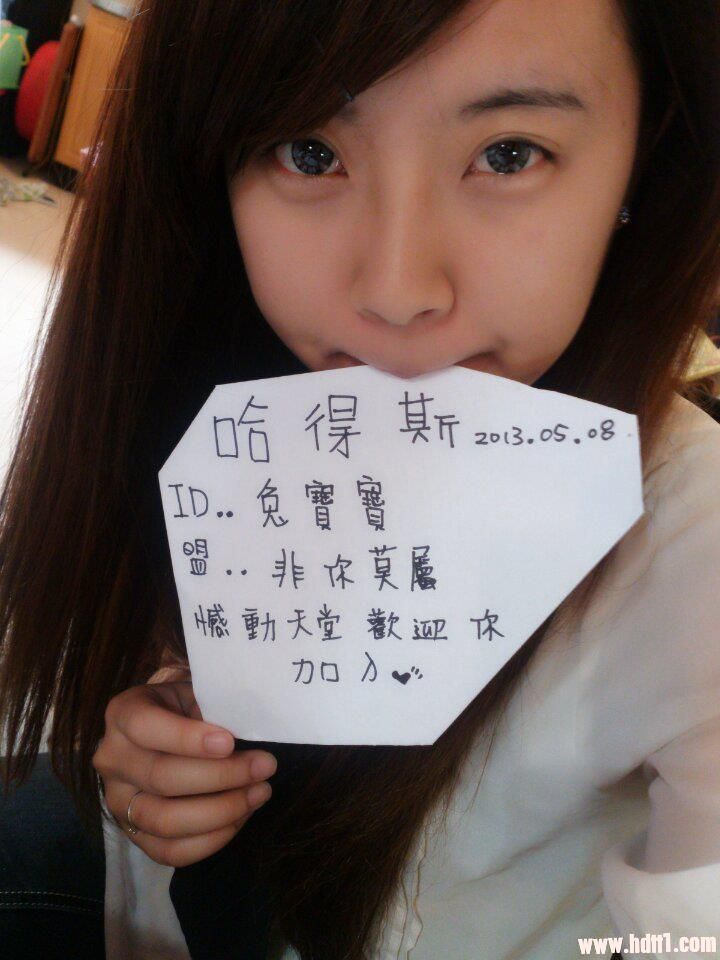 哈得斯 2013.05.08
ID.. 兔寶寶
盟.. 非你莫屬
憾動天堂歡迎你
加入
www.hdtt1.com